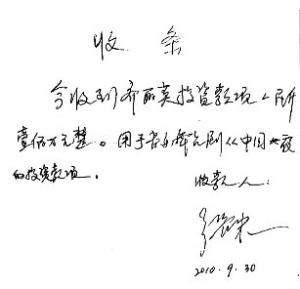 收条
今收到齐丽英投资款项人民币
壹佰万元整。用于音乐舞台剧《中国大
的投资款项。
收款人：
2010.9.30